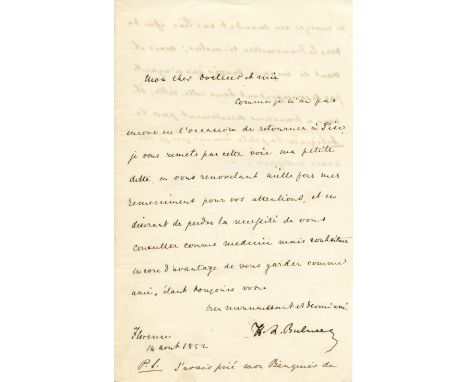 Mon cher Docteur et ami
Comme je n'ai pas
encore eu l'occasion de retourner à Pise,
je vous remets par cette voie ma petite
dette, en vous renouvelant mille fois mes
remerciment pour vos attentions, et en
desirent de perdre la necessité de vous
consulter comme medecin mais souhaitant
encore d'avantage de vous garder comme
ami, étant toujours votre
tres reconnaissant et devoué ami
H. L. Bulwer
Florence
14 aout 1852
P.S. J'avais prié mon Banquier de